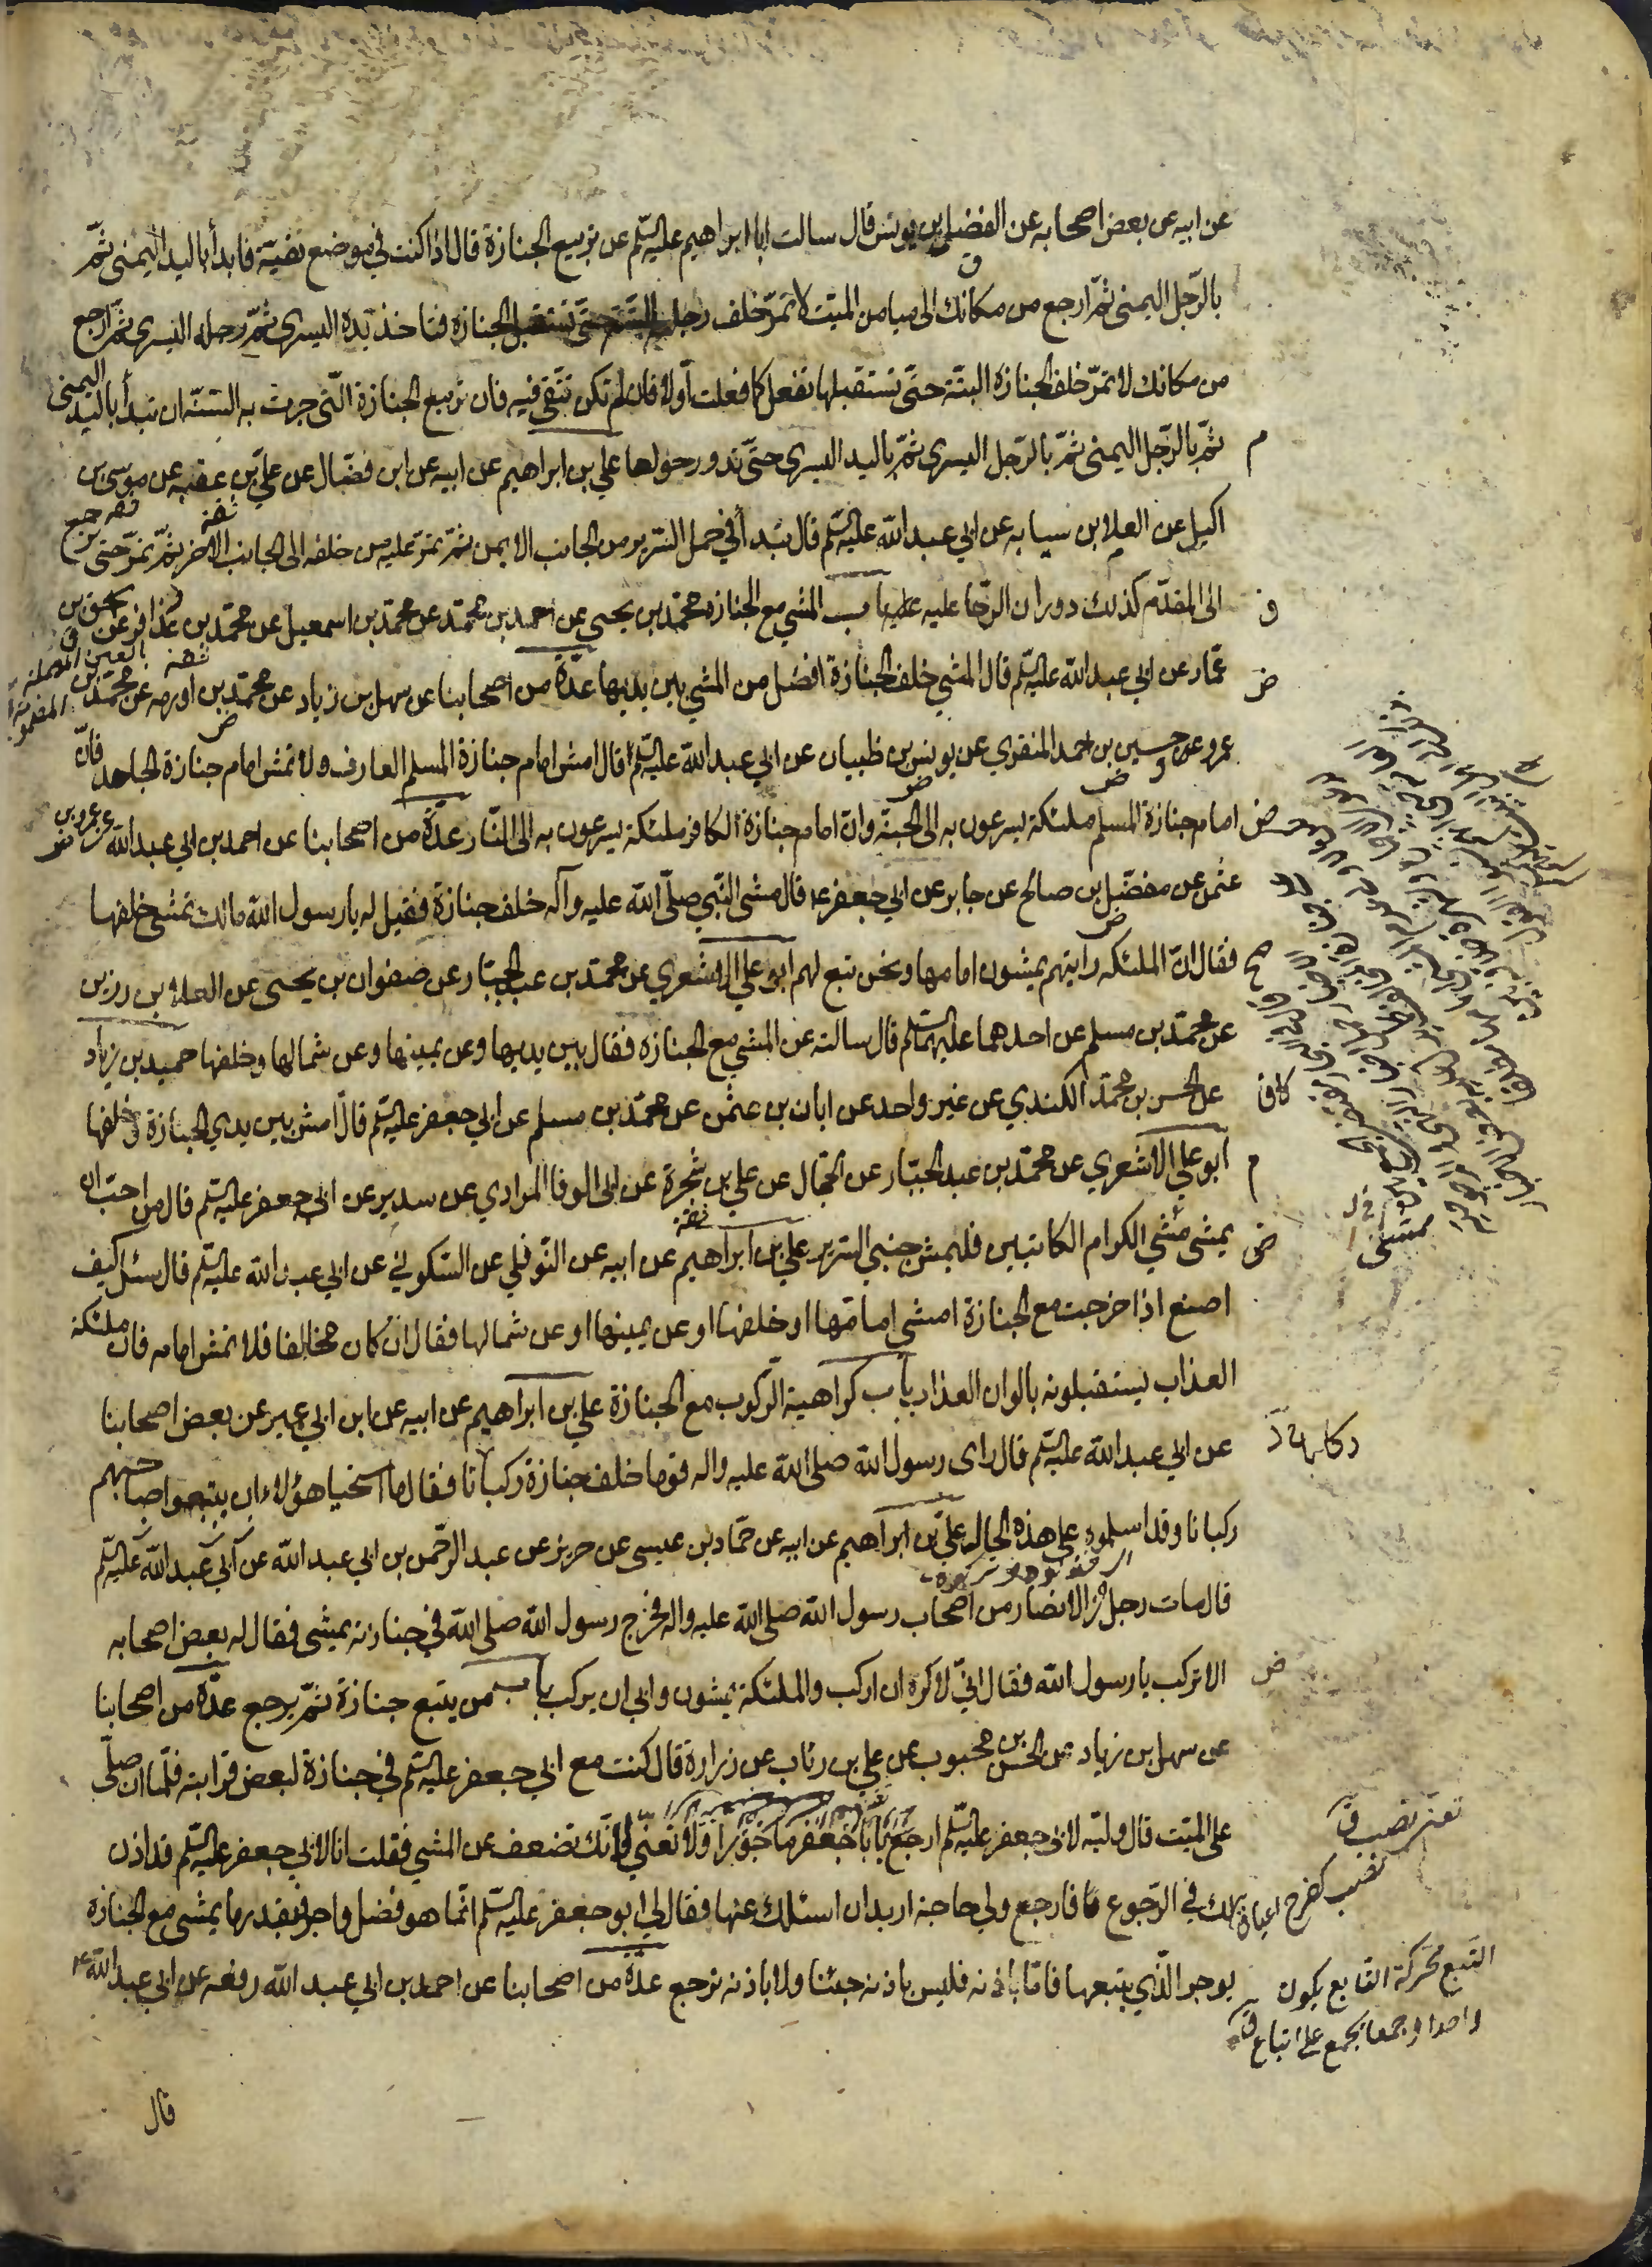 عن ابيه عن بعض اصحابه عن الفضل بن يونس قال سالت ابا ابراهيم عليه السّلم عن تربيع الجنازة قال اذا كنت في موضع تقيّة فابدأ باليد اليمنى ثمّ
بالرّجل اليمنى ثمّ ارجع من مكانك الى ميامن الميّت لا تمرّ خلف رجل الميّت حتّى تستقبل الجنازة فتاخذ يده اليسرى ثمّ رجله اليسرى ثمّ ارجع
من مكانك لا تمرّ خلف الجنازة البتّة حتّى تستقبلها تفعل كما فعلت اوّلا فان لم تكن تتّقي فيه فان تربيع الجنازة الّتي جرت به السّنّة ان تبدأ باليد اليمنى
ثمّ بالرّجل اليمنى ثمّ بالرّجل اليسرى ثمّ باليد اليسرى حتّى تدور حولها علي بن ابراهيم عن ابيه عن ابن فضّال عن عليّ بن عقبه عن موسى بن
اكيل عن العلا بن سيابه عن ابي عبد الله عليه السّلم قال تبدأ في حمل السّرير من الجانب الايمن ثمّ تمرّ عليه من خلفه الى الجانب الاخر ثمّ تمرّ حتى ترجع
الى المقدّم كذلك دوران الرّحا عليه باب المشي مع الجنازه محمّد بن يحيى عن احمد بن محمّد عن محمّد بن اسمعيل عن محمّد بن عذافر عن اسحق بن
عمّار عن ابي عبد الله عليه السّلم قال المشي خلف الجنازة افضل من المشي بين يديها عدّة من اصحابنا عن سهل بن زياد عن محمّد بن اورمه عن محمّد بن
عمرو عن حسين بن احمد المنقري عن يونس بن ظبيان عن ابي عبد الله عليه السّلم قال امش امام جنازة المسلم العارف ولا تمش امام جنازة الجاحد فانّ
امام جنازة المسلم ملئكة يسرعون به الى الجنّة وانّ امام جنازة الكافر ملئكة يسرعون به الى النّار عدّة من اصحابنا عن احمد بن ابي عبد الله عن عمرو بن
عثمن عن مفضّل بن صالح عن جابر عن ابي جعفر ع قال مشى النّبي صلّى الله عليه وآله خلف جنازة فقيل له يا رسول الله مالك تمشي خلفها
فقال انّ الملئكه رايتهم يمشون امامها ونحن تبع لهم ابو علي الاشعري عن محمّد بن عبد الجبّار عن صفوان بن يحيى عن العلا بن رزين
عن محمّد بن مسلم عن احدهما عليهما السّلم قال سالته عن المشي مع الجنازه فقال بين يديها وعن يمينها وعن شمالها وخلفها حميد بن زياد
عن الحسن بن محمّد الكندي عن غير واحد عن ابان بن عثمن عن محمّد بن مسلم عن ابي جعفر عليه السّلم قال امش بين يدي الجنازة وخلفها
ابو علي الاشعري عن محمّد بن عبد الجبّار عن الحجّال عن علي بن شجرة عن ابي الوفا المرادي عن سدير عن ابي جعفر عليه السّلم قال من احبّ ان
يمشي مشي الكرام الكاتبين فليمش جنبي السّرير علي بن ابراهيم عن ابيه عن النّوفلي عن السّكوني عن ابي عبد الله عليه السّلم قال سئل كيف
اصنع اذا خرجت مع الجنازة امشي امامها او خلفها او عن يمينها او عن شمالها فقال ان كان مخالفا فلا تمش امامه فان ملئكة
العذاب يستقبلونه بالوان العذاب باب كراهية الرّكوب مع الجنازة علي بن ابراهيم عن ابيه عن ابن ابي عمير عن بعض اصحابنا
عن ابي عبد الله عليه السّلم قال راى رسول الله صلى الله عليه واله قوما خلف جنازة ركبانا فقال اما استحيا هؤلاء ان يتبعوا صاحبهم
ركبانا وقد اسلموه على هذه الحال علي بن ابراهيم عن ابيه عن حمّاد بن عيسى عن حريز عن عبد الرّحمن بن ابي عبد الله عن ابي عبد الله عليه السّلم
قال مات رجل من الانصار من اصحاب رسول الله صلى الله عليه واله فخرج رسول الله صلى الله في جنازته يمشي فقال له بعض اصحابه
الا تركب يا رسول الله فقال انّي لاكره ان اركب والملئكة يمشون وابى ان يركب باب من يتبع جنازة ثمّ يرجع عدّة من اصحابنا
عن سهل بن زياد عن الحسن بن محبوب عن علي بن رئاب عن زرارة قال كنت مع ابي جعفر عليه السّلم في جنازة لبعض قرابته فلمّا ان صلّى
على الميّت قال وليّه لابي جعفر عليه السّلم ارجع يا با جعفر ماجورا ولا تعنّي لانّك تضعف عن المشي فقلت انا لابي جعفر عليه السّلم قد اذن
لك في الرّجوع فارجع ولي حاجة اريد ان اسئلك عنها فقال لي ابو جعفر عليه السّلم انّما هو فضل واجر فبقدر ما يمشي مع الجنازه
يوجر الّذي يتبعها فامّا باذنه فليس باذنه جئنا ولا باذنه نرجع عدّة من اصحابنا عن احمد بن ابي عبد الله رفعه عن ابي عبد الله ع
التبع محركة التابع يكون
واحدا وجمعا يجمع على اتباع ق
قال